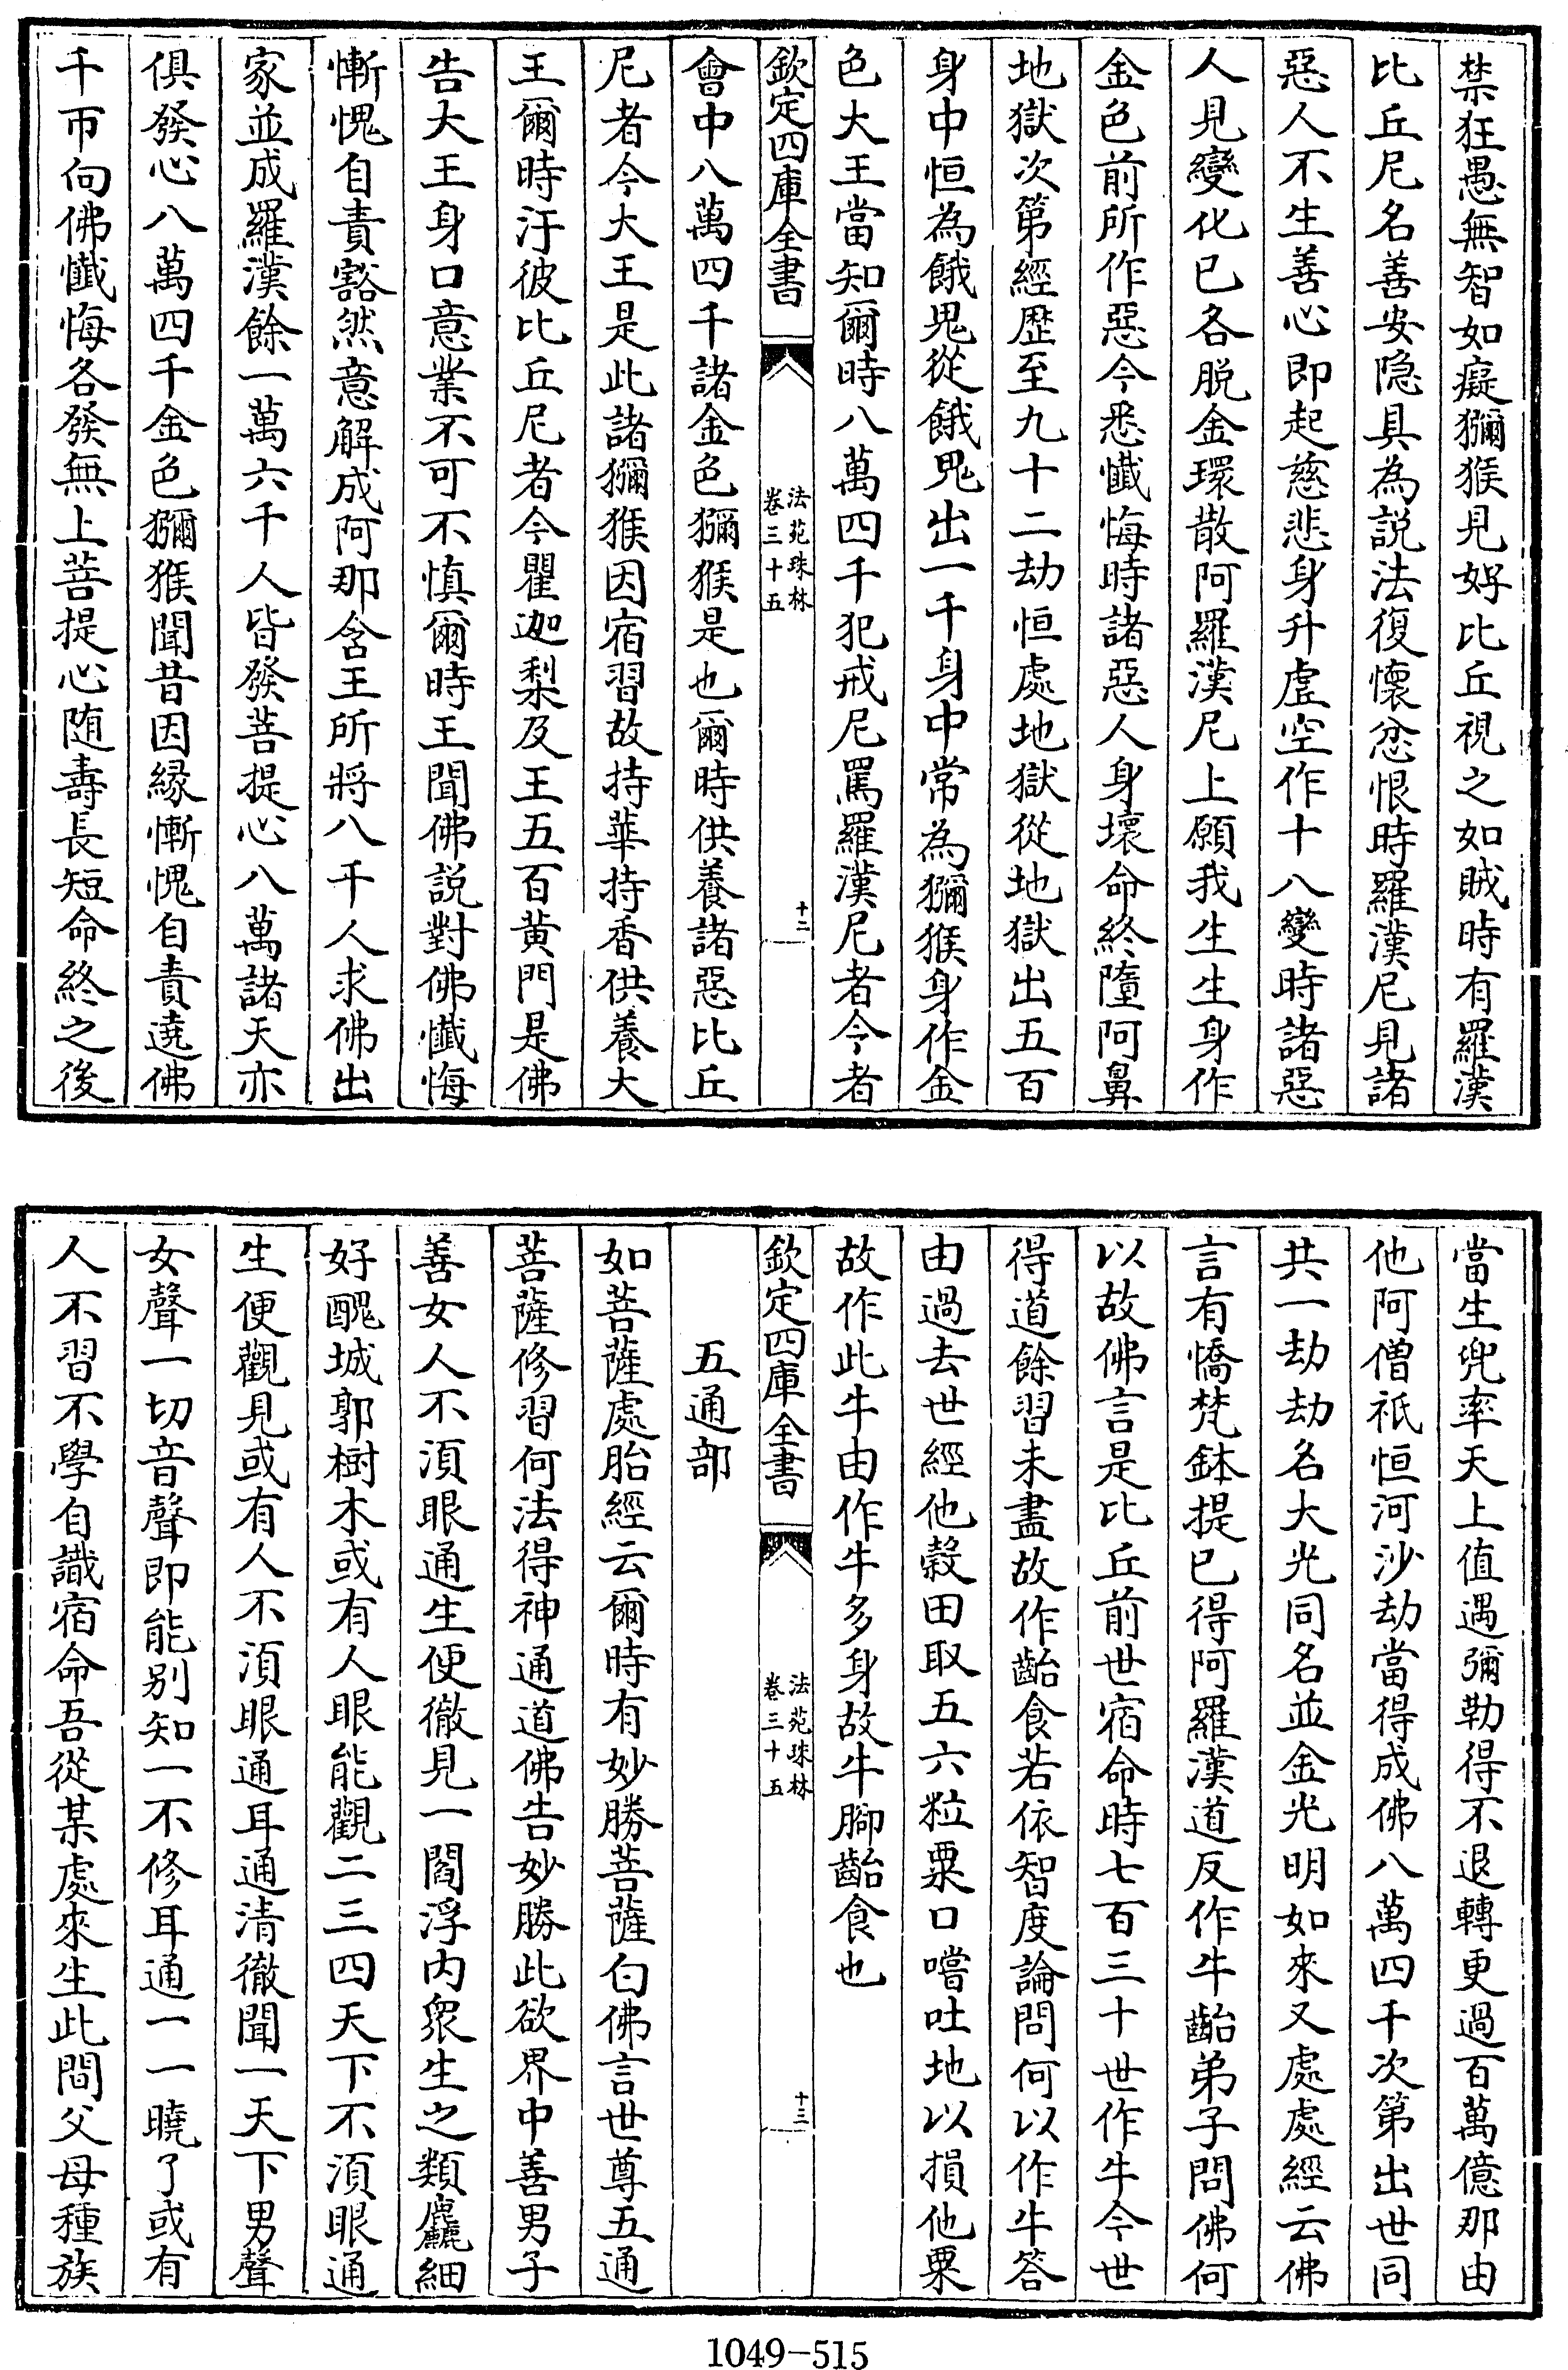 禁狂愚無智如癡獼猴見好比丘視之如賊時有羅漢
比丘尼名善安隱具為説法復懷忿恨時羅漢尼見諸
惡人不生善心即起慈悲身升虛空作十八變時諸惡
人見變化已各脱金環散阿羅漢尼上願我生生身作
金色前所作惡今悉懺悔時諸惡人身壞命終墮阿鼻
地獄次第經歴至九十二劫恒處地獄從地獄出五百
身中恒為餓鬼從餓鬼出一千身中常為獼猴身作金
色大王當知爾時八萬四千犯戒尼罵羅漢尼者今者
欽定四庫全書
法苑珠林
卷三十五
十二
會中八萬四千諸金色獼猴是也爾時供養諸惡比丘
尼者今大王是此諸獼猴因宿習故持華持香供養大
王爾時汙彼比丘尼者今瞿迦梨及王五百黄門是佛
告大王身口意業不可不慎爾時王聞佛説對佛懺悔
慚愧自責豁然意解成阿那含王所將八千人求佛出
家並成羅漢餘一萬六千人皆發菩提心八萬諸天亦
俱發心八萬四千金色獼猴聞昔因縁慚愧自責遶佛
千帀向佛懺悔各發無上菩提心随壽長短命終之後
當生兜率天上值遇彌勒得不退轉更過百萬億那由
他阿僧祇恒河沙劫當得成佛八萬四千次第出世同
共一劫劫名大光同名並金光明如來又處處經云佛
言有憍梵鉢提已得阿羅漢道反作牛齝弟子問佛何
以故佛言是比丘前世宿命時七百三十世作牛今世
得道餘習未盡故作齝食若依智度論問何以作牛答
由過去世經他榖田取五六粒粟口嚐吐地以損他粟
故作此牛由作牛多身故牛腳齝食也
欽定四庫全書
法苑珠林
卷三十五
十三
五通部
如菩薩處胎經云爾時有妙勝菩薩白佛言世尊五通
菩薩修習何法得神通道佛告妙勝此欲界中善男子
善女人不湏眼通生便徹見一閻浮内衆生之類麤細
好醜城郭樹木或有人眼能觀二三四天下不湏眼通
生便觀見或有人不湏眼通耳通清徹聞一天下男聲
女聲一切音聲即能别知一不修耳通一一曉了或有
人不習不學自識宿命吾從某處來生此間父母種族
1049-515